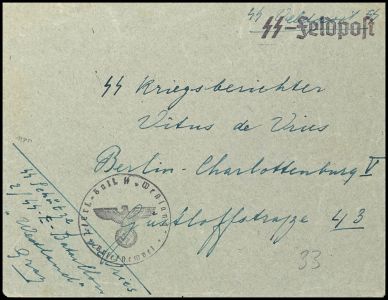 SS Feldpost
SS-Feldpost
SS Kriegsberichter
Vitus de Vries
Berlin-Charlottenburg V
Gustloffstraße 43
33
SS Schütze Vries
2/ SS-E-Bataillon
"Westland"
Graz